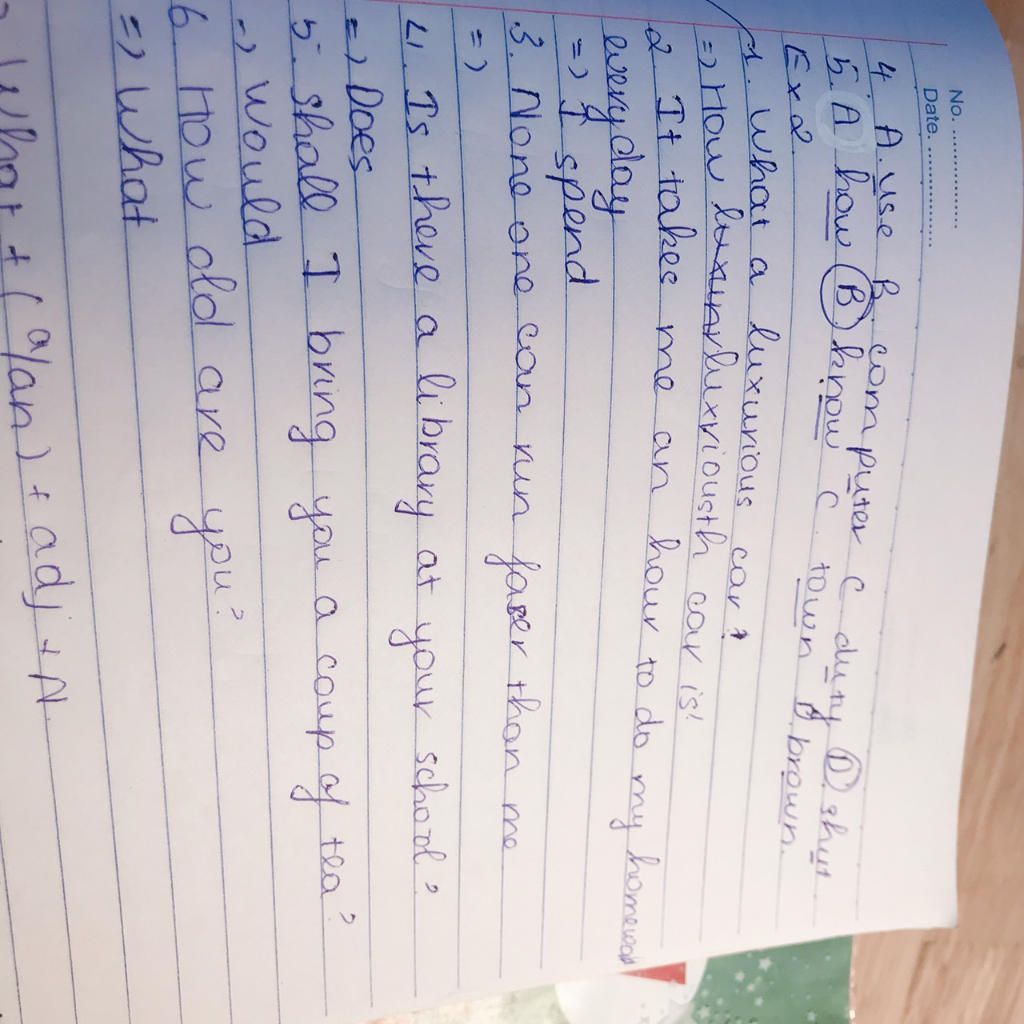 No. ................
Date. ................
4. A. use B. computer C duty D. shut
5. A how B know C. town D. brown.
Ex2.
1. What a luxurious car?
=> How luxurious car is!
2 It takes me an hour to do my
everyday
=> I spend
3. None one can run faser than me
=>
4. Is there a library at your school?
=> Does
5. shall I bring you a coup of tea?
-> would
6. How old are you?
=> What
What + (a/an) + adj + N